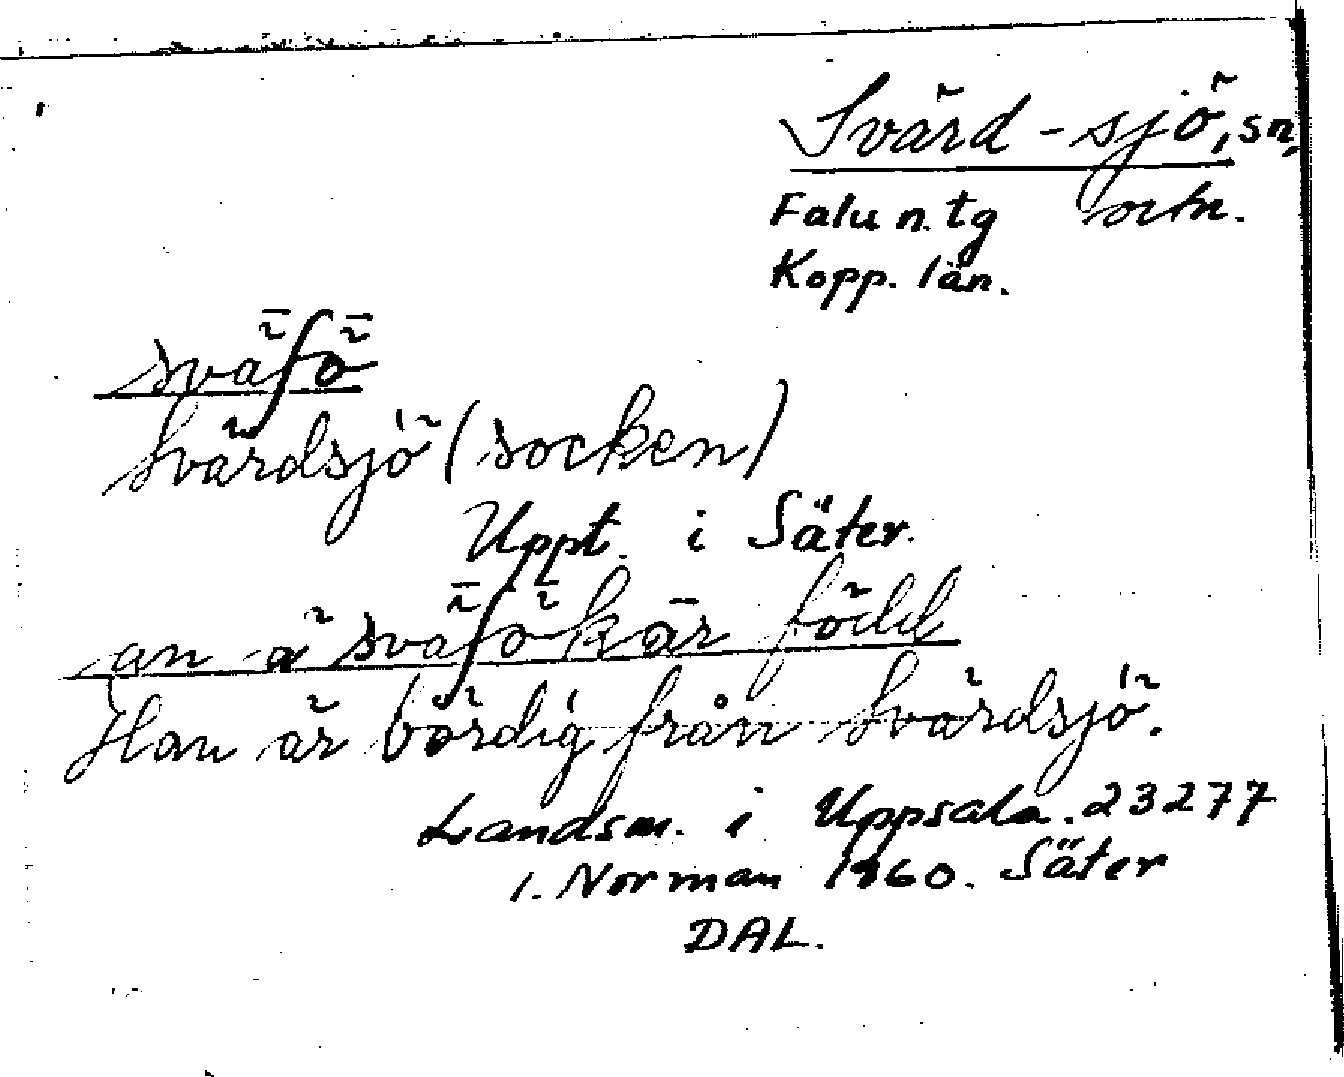 Svärd-sjö, sn,
Falu n. tg ortn.
Kopp. län.
svǟʃȫ
Svärdsjö (socken)
Uppt. i Säter.
an ä svǟʃȫkār född
Han är bördig från Svärdsjö.
Landsm. i Uppsala. 23277
1. Norman 1860. Säter
DAL.